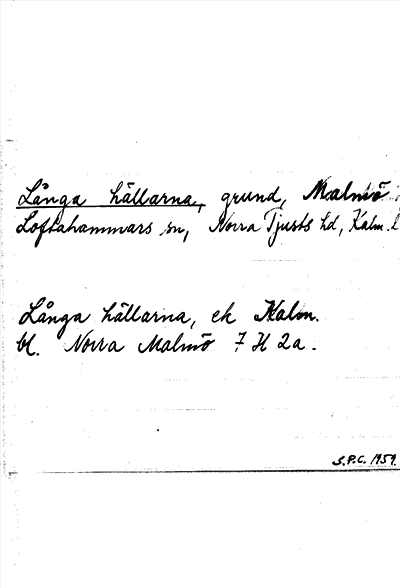 Långa hällarna, grund, Malmö
Loftahammars sn, Norra Tjusts hd, Kalm. l
Långa hällarna, ek Kalm.
bl. Norra Malmö 7 H 2a.
S.P.C. 1959.